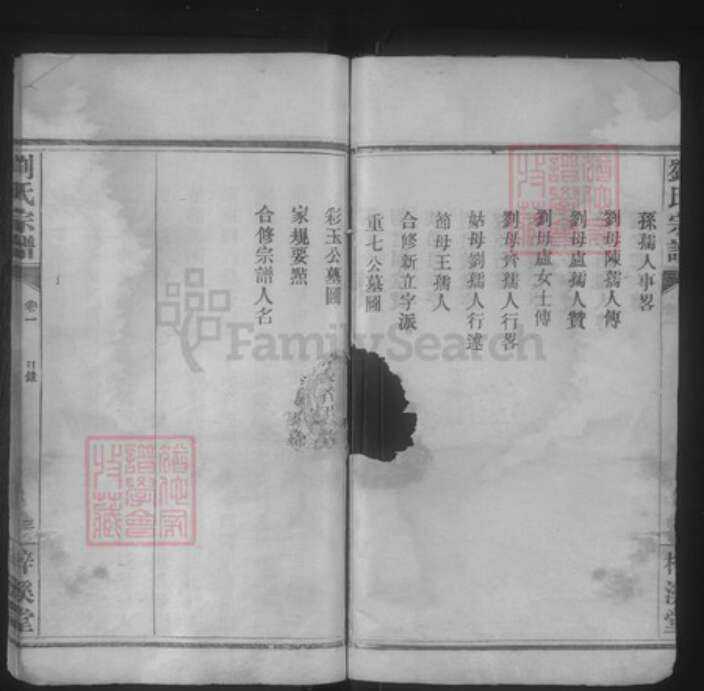 劉氏宗譜
孫孺人事畧
劉母陳孺人傳
劉母盧孺人贊
劉母盧女士傳
劉母齊孺人行畧
姑母劉孺人行述
節母王孺人
合修新立字派
重七公墓圖
彩玉公墓圖
家規要㸃
合修宗譜人名
劉氏宗譜
卷一
目錄
FamilySearch